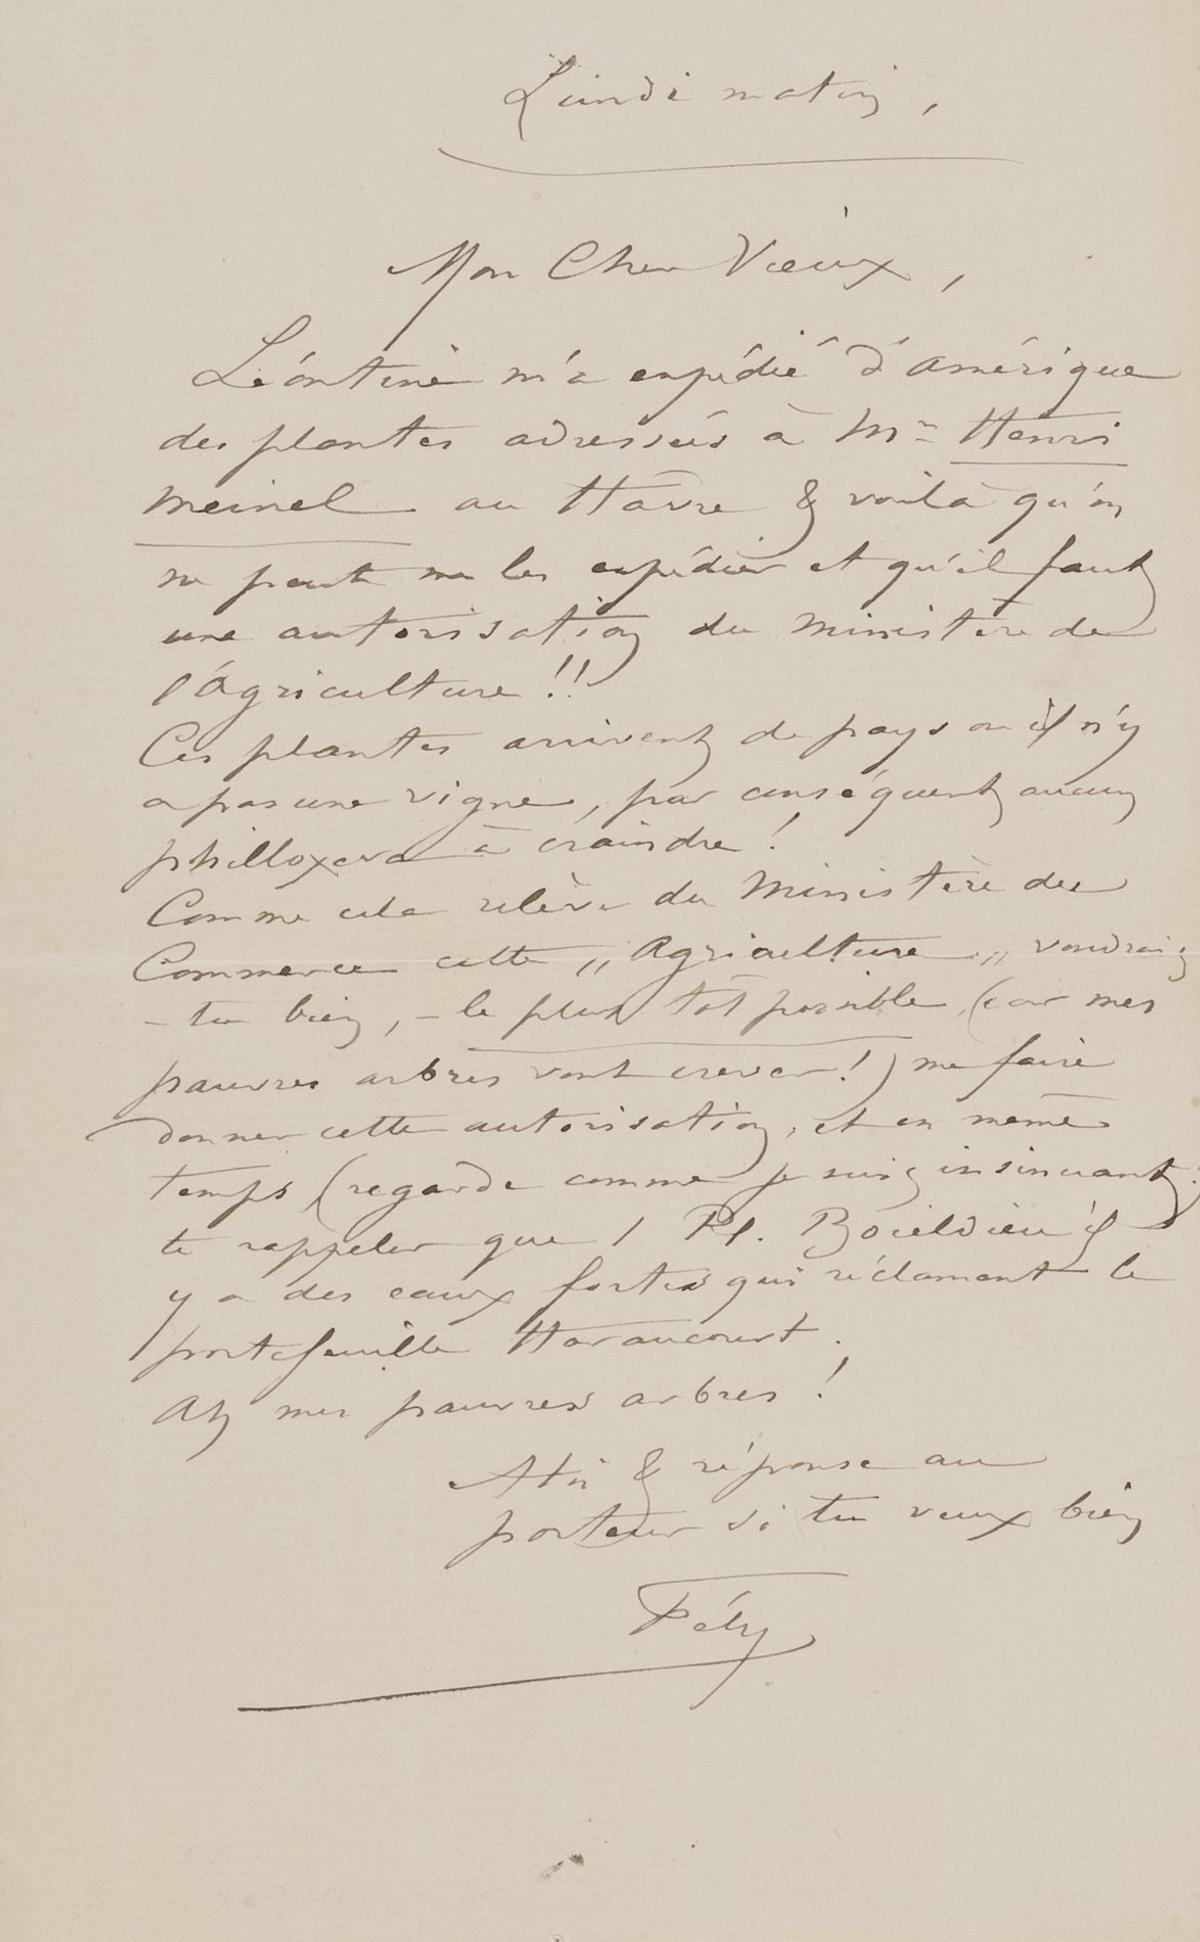 Lundi matin,
Mon Cher Vieux,
Léontine m'a expédié d'Amérique
des plantes adressées à Mr Henri
Meinel au Havre & voilà qu'on
ne peut me les expédier et qu'il faut
une autorisation du Ministère de
l'Agriculture !!
Ces plantes arrivent de pays où il n'y
a pas une vigne, par conséquent aucun
philloxera à craindre !
Comme cela relève du Ministère du
Commerce cette „Agriculture„ voudrais
- tu bien, - le plus tôt possible (car mes
pauvres arbres vont crever !) me faire
donner cette autorisation, et en même
temps (regarde comme je suis insinuant)
te rappeler que 1 Pl. Boieldieu il
y a des eaux fortes qui réclament le
portefeuille Haraucourt.
Ah mes pauvres arbres !
& réponse au
porteur si tu veux bien
Fély